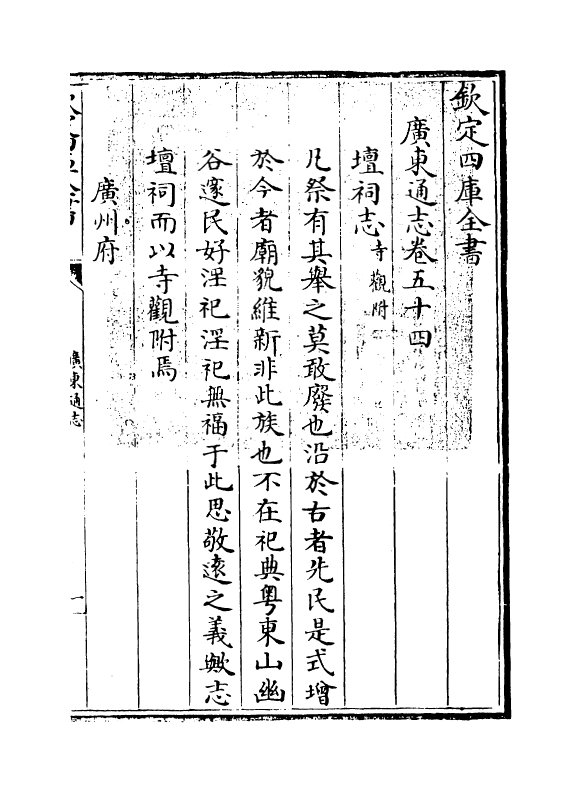 欽定四庫全書
廣東通志卷五十四
壇祠志寺觀附
凡祭有其舉之莫敢廢也沿於古者兆民是式增
於今者廟貌維新非此族也不在祀典粤東山幽
谷邃民好淫祀淫祀無福于此思敬逺之義歟志
壇祠而以寺觀附焉
廣州府
廣東通志
一